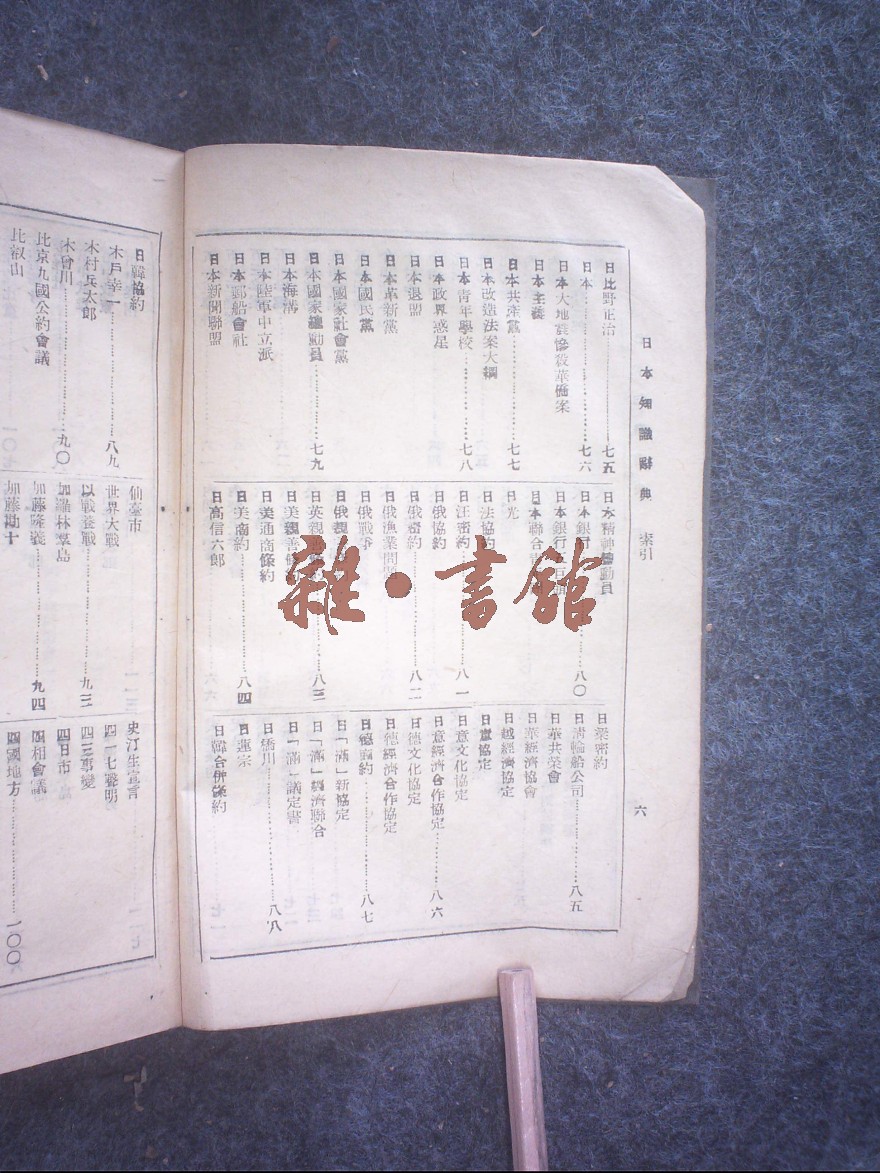 日本知識辭典 索引
六
日比野正治……七五
日本……七六
日本大地震慘殺華僑案
日本主義
日本共產黨……七七
日本改造法案大綱
日本青年學校……七八
日本政界惑星
日本退盟
日本革新黨
日本國民黨
日本國家社會黨
日本國家總動員……七九
日本海溝
日本陸軍中立派
日本郵船會社
日本新聞聯盟
日本精神總動員
日本銀行……八〇
日本銀行
日本聯合
日光
日法協約
日汪密約……八一
日俄協約
日俄密約……八二
日俄漁業問
日俄戰爭
日俄
日英親……八三
日美親善
日美通商條約
日美商約……八四
日高信六郎
日泰密約
日清輪船公司……八五
日華共榮會
日華經濟協會
日越經濟協定
日意協定
日意文化協定
日意經濟合作協定……八六
日德文化協定
日德經濟合作協定
日德密約……八七
日「滿」新協定
日「滿」經濟聯合
日「滿」議定書
日橋川……八八
日蓮宗
日韓合併條約
日韓協約
木戶幸一……八九
木村兵太郎
木曾川……九〇
比京九國公約會議
比叡山
仙臺市
世界大戰
以戰養戰……九三
加羅林羣島
加藤隆義……九四
加藤勘十
史汀生宣言
四一七聲明
四三事變
四日市
四相會議
四國地方……一〇〇
雜·書館